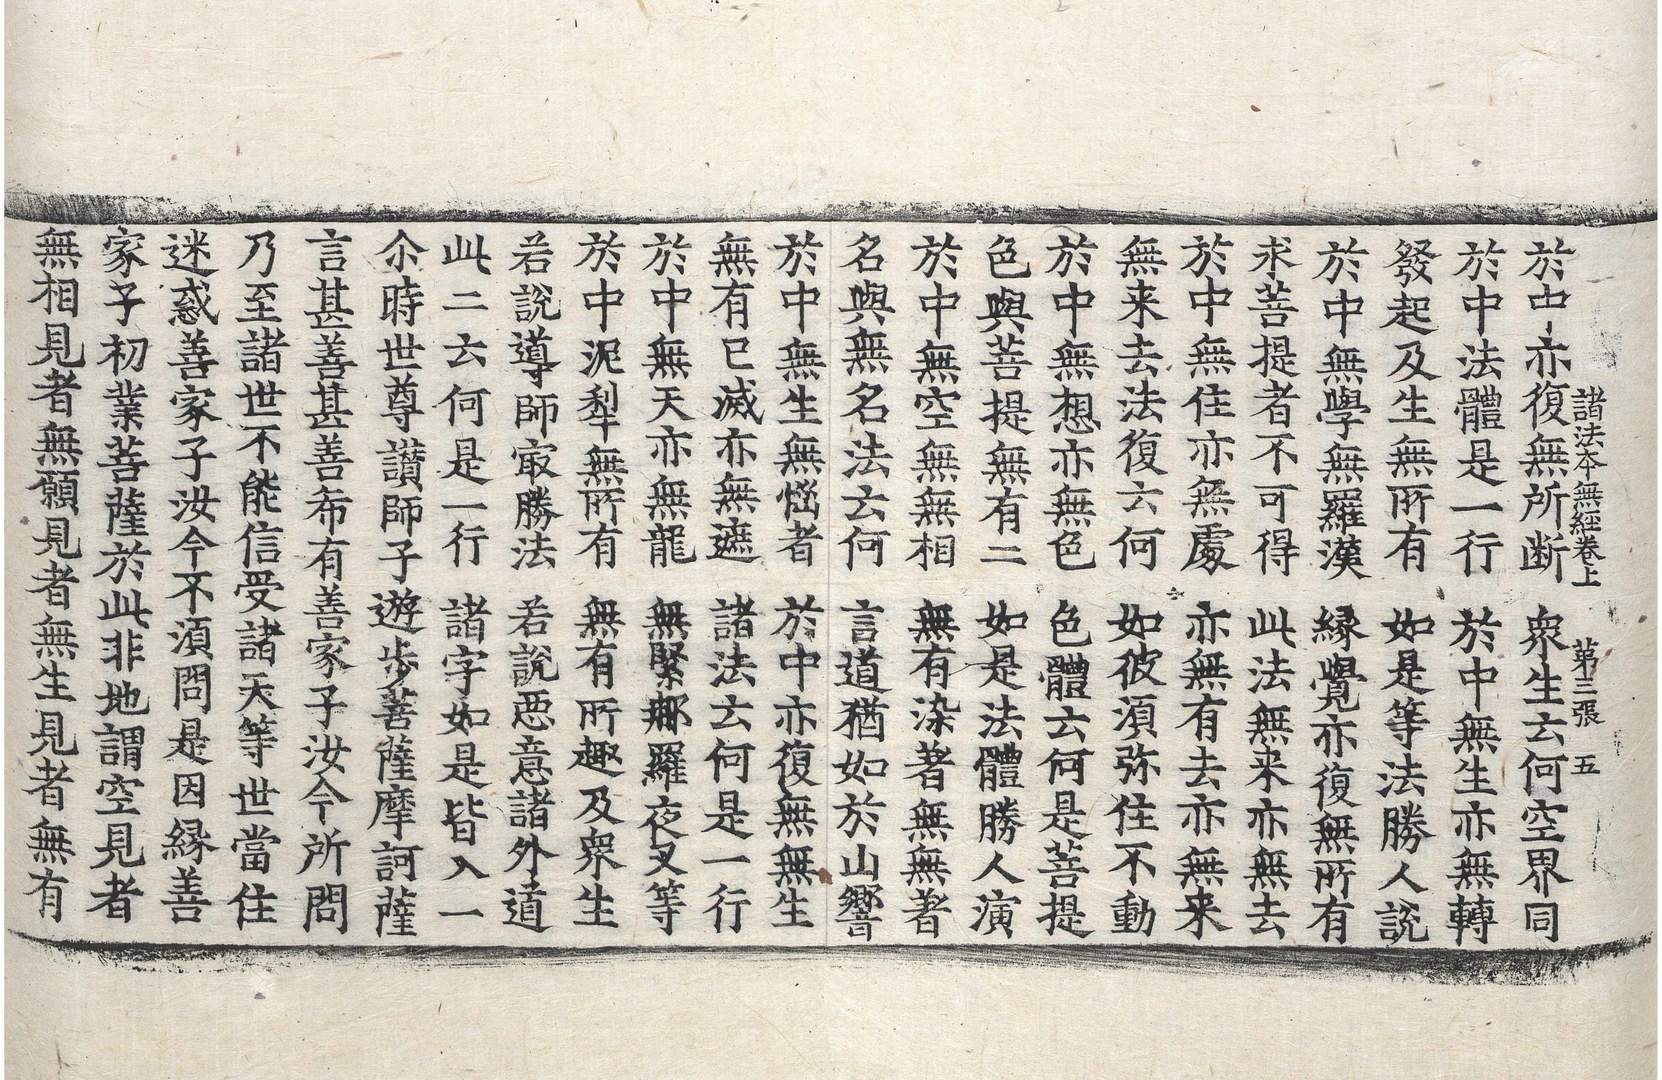 諸法夲無經卷上　第三張　五
於中亦復無所断　衆生云何空界同
於中法體是一行　於中無生亦無轉
發起及生無所有　如是等法勝人說
於中無學無羅漢　縁覺亦復無所有
求菩提者不可得　此法無来亦無去
於中無住亦無處　亦無有去亦無来
無来去法復云何　如彼湏弥住不動
於中無想亦無色　色體云何是菩提
色與菩提無有二　如是法體勝人演
於中無空無無相　無有染著無無著
名與無名法云何　言道猶如於山響
於中無生無惱者　於中亦復無無生
無有已滅亦無遮　諸法云何是一行
於中無天亦無龍　無緊那羅夜叉等
於中泥犁無所有　無有所趣及衆生
若說導師㝡勝法　若說惡意諸外道
此二云何是一行　諸字如是皆入一
尒時世尊讃師子遊步菩薩摩訶薩
言甚善甚善希有善家子汝今所問
乃至諸世不能信受諸天等世當住
迷惑善家子汝今不湏問是因縁善
家子初業菩薩於此非地謂空見者
無相見者無願見者無生見者無有